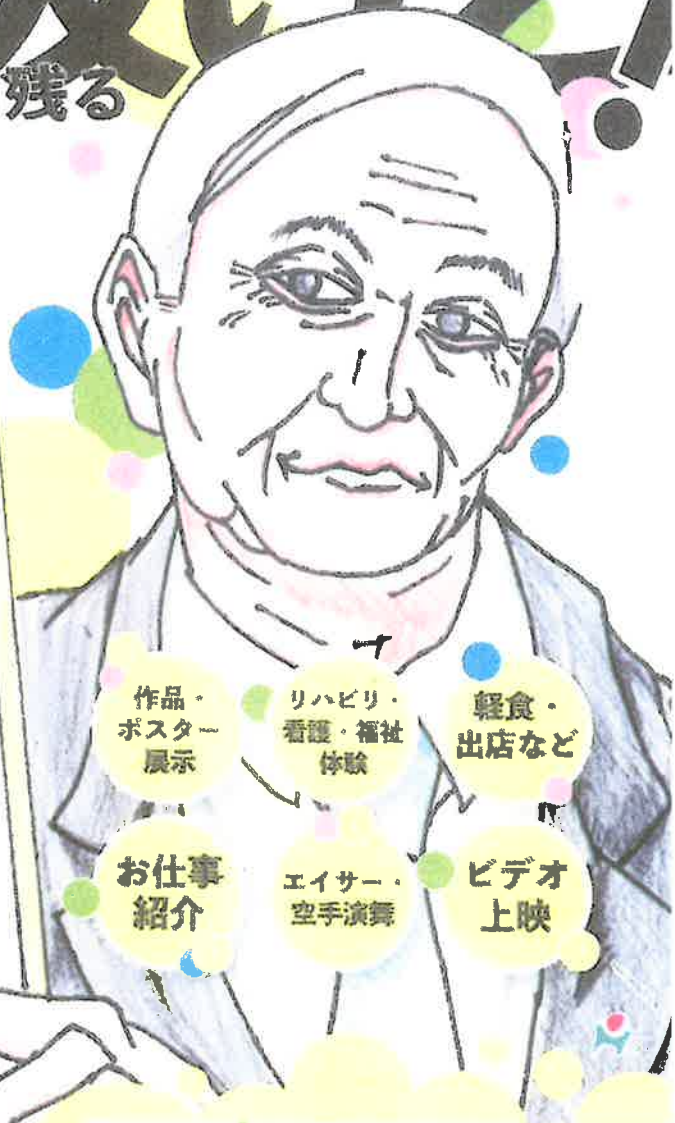 残る
作品・
ポスター
展示
リハビリ・
看護・福祉
体験
軽食・
出店など
お仕事
紹介
エイサー・
空手演舞
ビデオ
上映